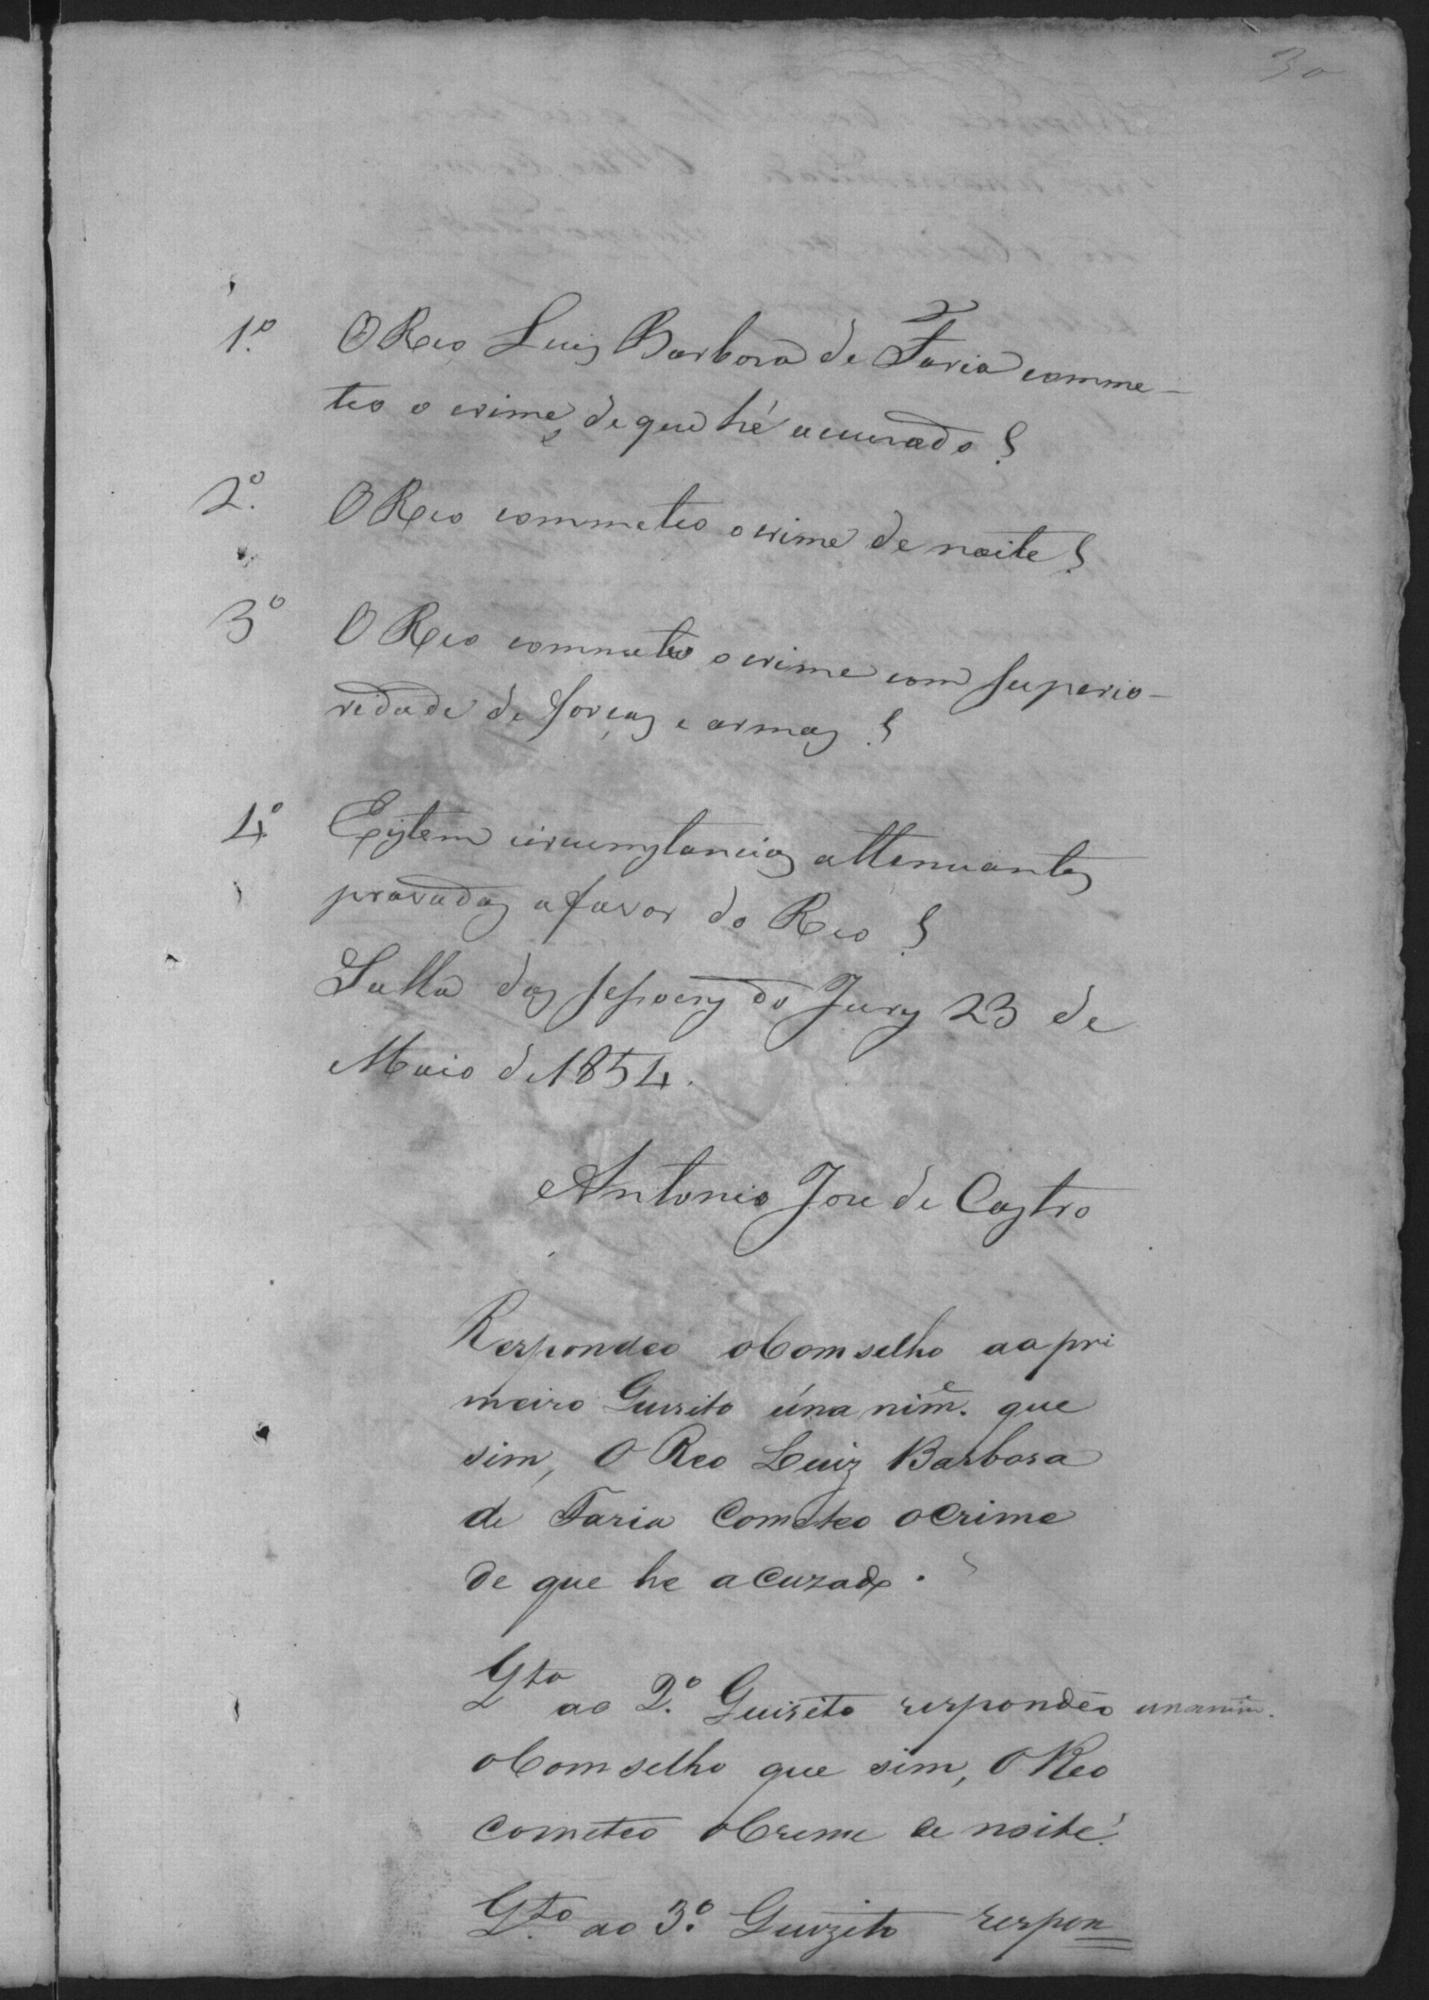 30
1º. O Reo Luis Barbosa de Faria comme-
teo o crime, de que hé accusado?
2º. O Reo commeteo o crime de noite?
3º O Reo commeteo o crime com superio-
ridade de forças e armas?
4º Existem circumstancias attenuantes
provadas a favor do Reo?
Salla das sessoens do Jury 23 de
Maio de 1854.
Antonio Jose de Castro
Respondeo o Comselho ao pri
meiro Quizito únanim.e que
sim, O Reo Luiz Barbosa
de Faria Cometeo o Crime
de que he acuzado.
Qto ao 2º. Quizito respondeo unanim.e
o Comselho que sim, O Reo
cometeo o Creme de noite.
Qto ao 3º. Quizito respon